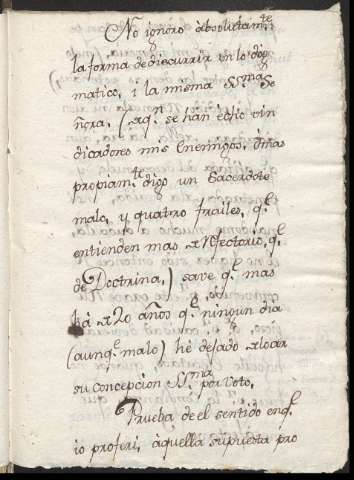 No ignoro absolutam.te
la forma de discurrir en lo dog
matico, i la misma SS.ma Se
ñora, (aq.n se han echo vin
dicadores mis Enemigos, ò mas
propiam.te digo un Sacerdote
malo, y quatro frailes, q.e
entienden mas de Refectorio, q.e
de Doctrina,) save q.e mas
hà de 20 años q.e ningun dia
(aunq.e malo) hè dejado de loar
su Concepcion SS.ma por voto.
Prueba de el sentido enq.e
io proferi, àquella supuesta pro